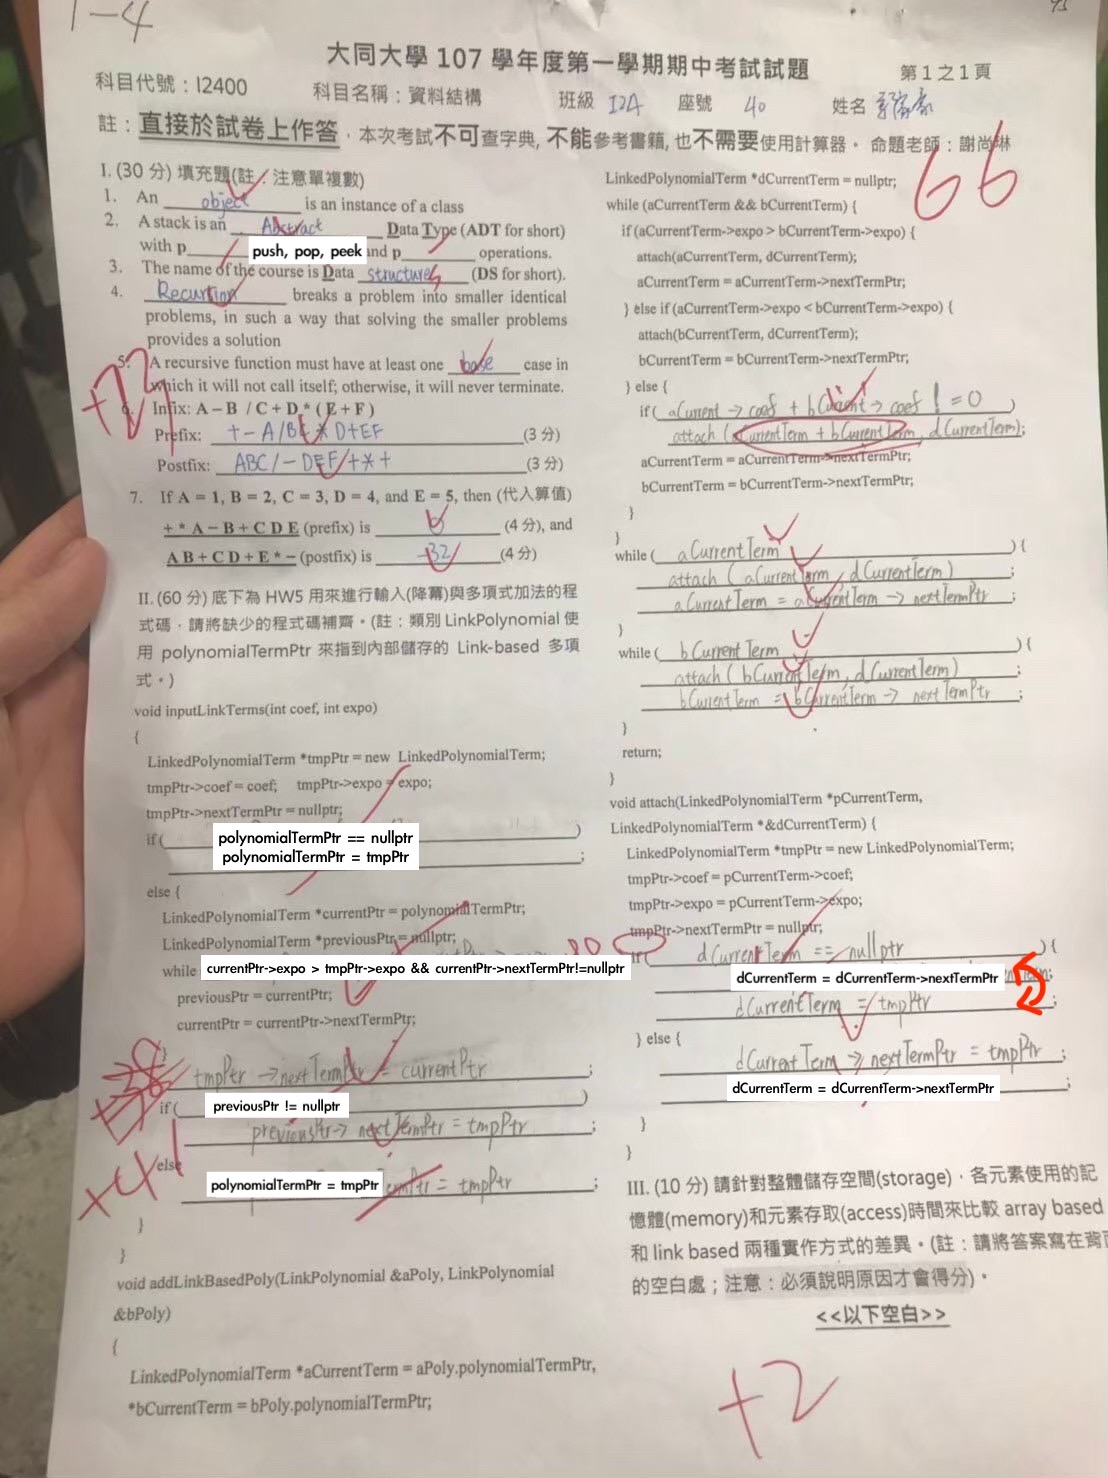 1-4
大同大學 107 學年度第一學期期中考試試題
第 1 之 1 頁
科目代號：I2400 科目名稱：資料結構 班級 I2A 座號 40 姓名
註：直接於試卷上作答，本次考試不可查字典, 不能參考書籍, 也不需要使用計算器。 命題老師：謝尚琳
66
I. (30 分) 填充題(註：注意單複數)
1. An object is an instance of a class
2. A stack is an Abstract Data Type (ADT for short)
with p push, pop, peek and p operations.
3. The name of the course is Data structures (DS for short).
4. Recurtion breaks a problem into smaller identical
problems, in such a way that solving the smaller problems
provides a solution
5. A recursive function must have at least one base case in
which it will not call itself; otherwise, it will never terminate.
+27
6. Infix: A – B / C + D * ( E + F )
Prefix: + - A/BC * D+EF (3 分)
Postfix: ABC/-DEF+*+ (3 分)
7. If A = 1, B = 2, C = 3, D = 4, and E = 5, then (代入算值)
+ * A – B + C D E (prefix) is (4 分), and
A B + C D + E * – (postfix) is -32 (4 分)
II. (60 分) 底下為 HW5 用來進行輸入(降冪)與多項式加法的程
式碼，請將缺少的程式碼補齊。(註：類別 LinkPolynomial 使
用 polynomialTermPtr 來指到內部儲存的 Link-based 多項
式。)
void inputLinkTerms(int coef, int expo)
{
LinkedPolynomialTerm *tmpPtr = new LinkedPolynomialTerm;
tmpPtr->coef = coef; tmpPtr->expo = expo;
tmpPtr->nextTermPtr = nullptr;
if ( polynomialTermPtr == nullptr )
polynomialTermPtr = tmpPtr ;
else {
LinkedPolynomialTerm *currentPtr = polynomialTermPtr;
LinkedPolynomialTerm *previousPtr = nullptr;
while currentPtr->expo > tmpPtr->expo && currentPtr->nextTermPtr!=nullptr
previousPtr = currentPtr;
currentPtr = currentPtr->nextTermPtr;
}
tmpPtr -> nextTermPtr = currentPtr ;
if ( previousPtr != nullptr )
previousPtr -> nextTermPtr = tmpPtr ;
+41
else
polynomialTermPtr = tmpPtr = tmpPtr ;
}
}
void addLinkBasedPoly(LinkPolynomial &aPoly, LinkPolynomial
&bPoly)
{
LinkedPolynomialTerm *aCurrentTerm = aPoly.polynomialTermPtr,
*bCurrentTerm = bPoly.polynomialTermPtr;
LinkedPolynomialTerm *dCurrentTerm = nullptr;
while (aCurrentTerm && bCurrentTerm) {
if (aCurrentTerm->expo > bCurrentTerm->expo) {
attach(aCurrentTerm, dCurrentTerm);
aCurrentTerm = aCurrentTerm->nextTermPtr;
} else if (aCurrentTerm->expo < bCurrentTerm->expo) {
attach(bCurrentTerm, dCurrentTerm);
bCurrentTerm = bCurrentTerm->nextTermPtr;
} else {
if( aCurrent -> coef + bCurrent -> coef != 0 )
attach (aCurrentTerm + bCurrentTerm, dCurrentTerm);
aCurrentTerm = aCurrentTerm->nextTermPtr;
bCurrentTerm = bCurrentTerm->nextTermPtr;
}
}
while ( aCurrentTerm ) {
attach ( aCurrentTerm , dCurrentTerm ) ;
aCurrentTerm = aCurrentTerm -> nextTermPtr ;
}
while ( bCurrentTerm ) {
attach ( bCurrentTerm , dCurrentTerm ) ;
bCurrentTerm = bCurrentTerm -> nextTermPtr ;
}
return;
}
void attach(LinkedPolynomialTerm *pCurrentTerm,
LinkedPolynomialTerm *&dCurrentTerm) {
LinkedPolynomialTerm *tmpPtr = new LinkedPolynomialTerm;
tmpPtr->coef = pCurrentTerm->coef;
tmpPtr->expo = pCurrentTerm->expo;
tmpPtr->nextTermPtr = nullptr;
if ( dCurrentTerm == nullptr ) {
dCurrentTerm = dCurrentTerm->nextTermPtr ;
dCurrentTerm = tmpPtr ;
} else {
dCurrentTerm -> nextTermPtr = tmpPtr ;
dCurrentTerm = dCurrentTerm->nextTermPtr ;
}
}
III. (10 分) 請針對整體儲存空間(storage)，各元素使用的記
憶體(memory)和元素存取(access)時間來比較 array based
和 link based 兩種實作方式的差異。(註：請將答案寫在背面
的空白處；注意：必須說明原因才會得分)。
<<以下空白>>
+2